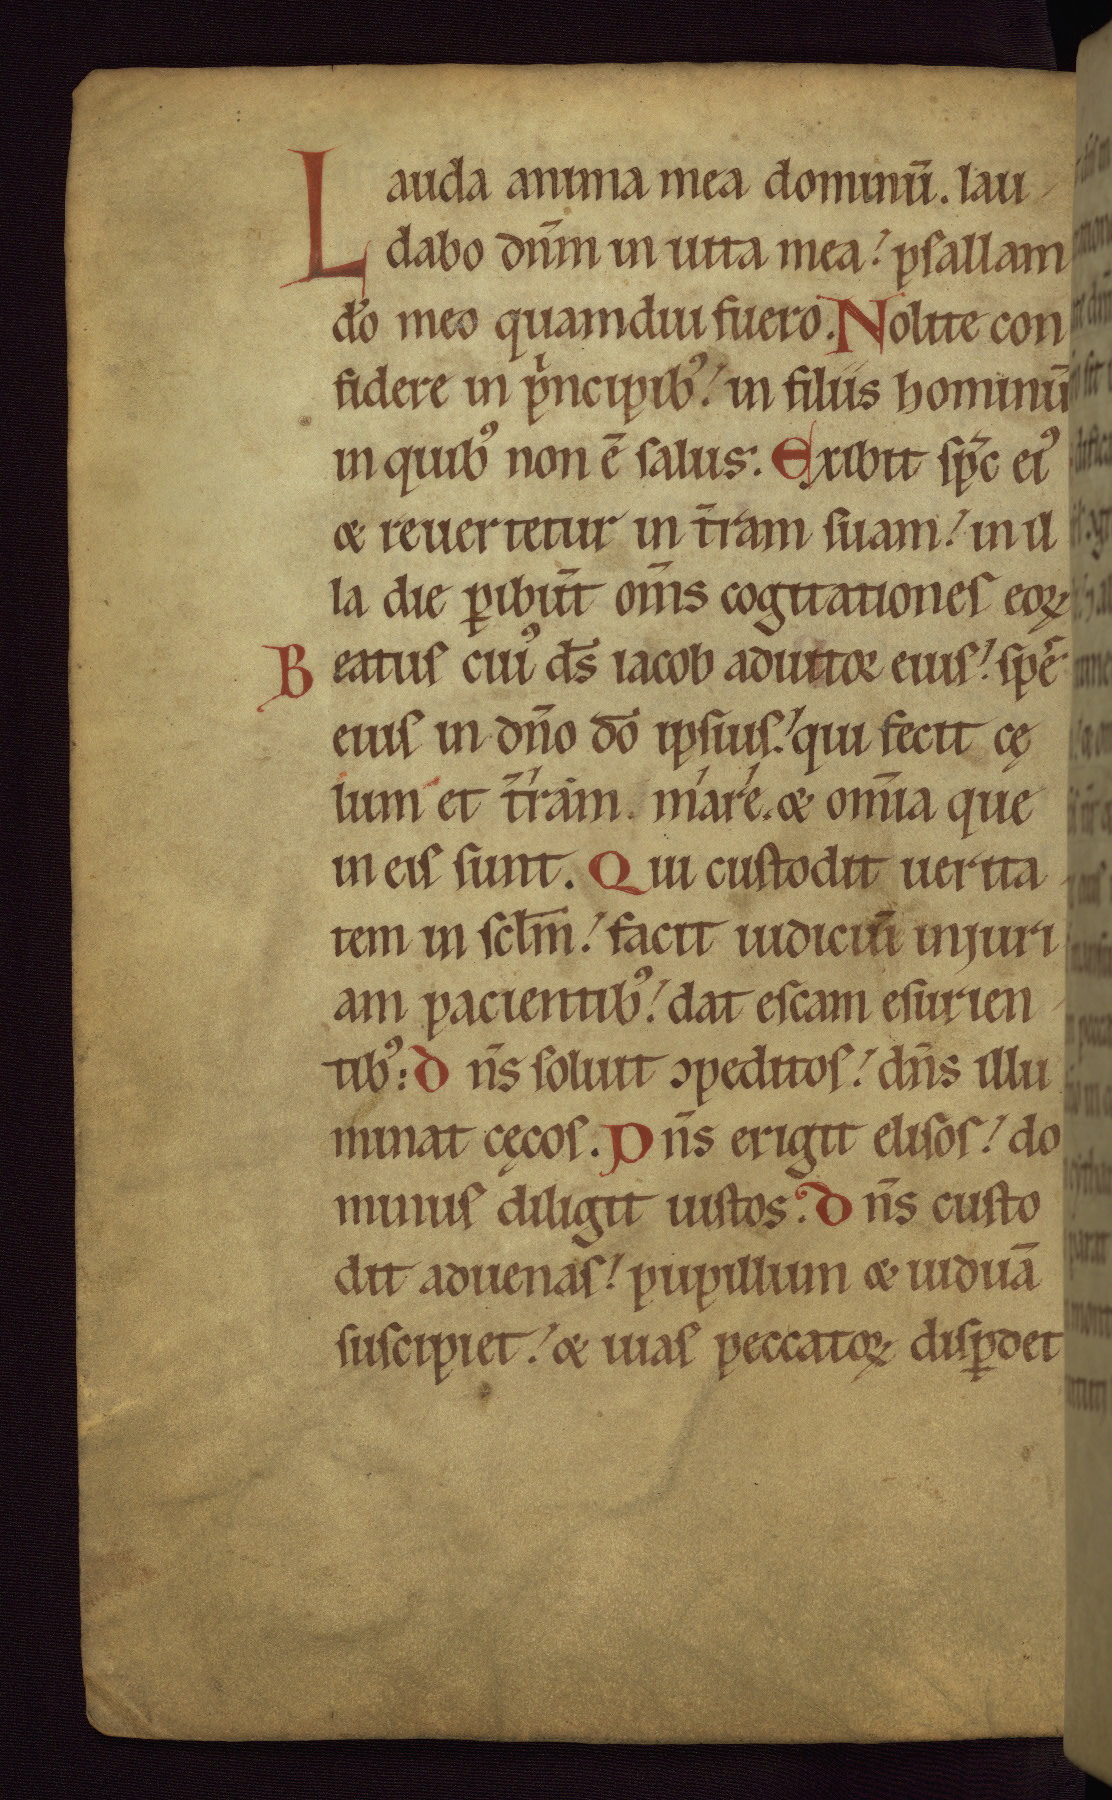 Lauda anima mea dominū. lau
dabo dn̄m in uita mea! psallam
do meo quamdiu fuero. Nolite con
fidere in pⁱncipib᾽! in filiis hominū
in quib᾽ non ē salus. Exibit sp̄c ei᾽
& reuertetur in t̄ram suam! in il
la die ꝑibūt om̄s cogitationes eoꝝ
Beatus cui᾽ ds̄ iacob adiutor eius! spē
eius in dn̄o dō ipsius! qui fecit cę
lum et t̄ram. mare. & om̄ia que
in eis sunt. Qui custodit uerita
tem in scl̄m! facit iudiciū injuri
am pacientib᾽! dat escam esurien
tib᾽: Dn̄s soluit ↄpeditos! dn̄s illu
minat cęcos. Dn̄s erigit elisos! do
minus diligit iustos. Dn̄s custo
dit aduenas! pupillum & uiduā
suscipiet! & uias peccatoꝝ disꝑdet